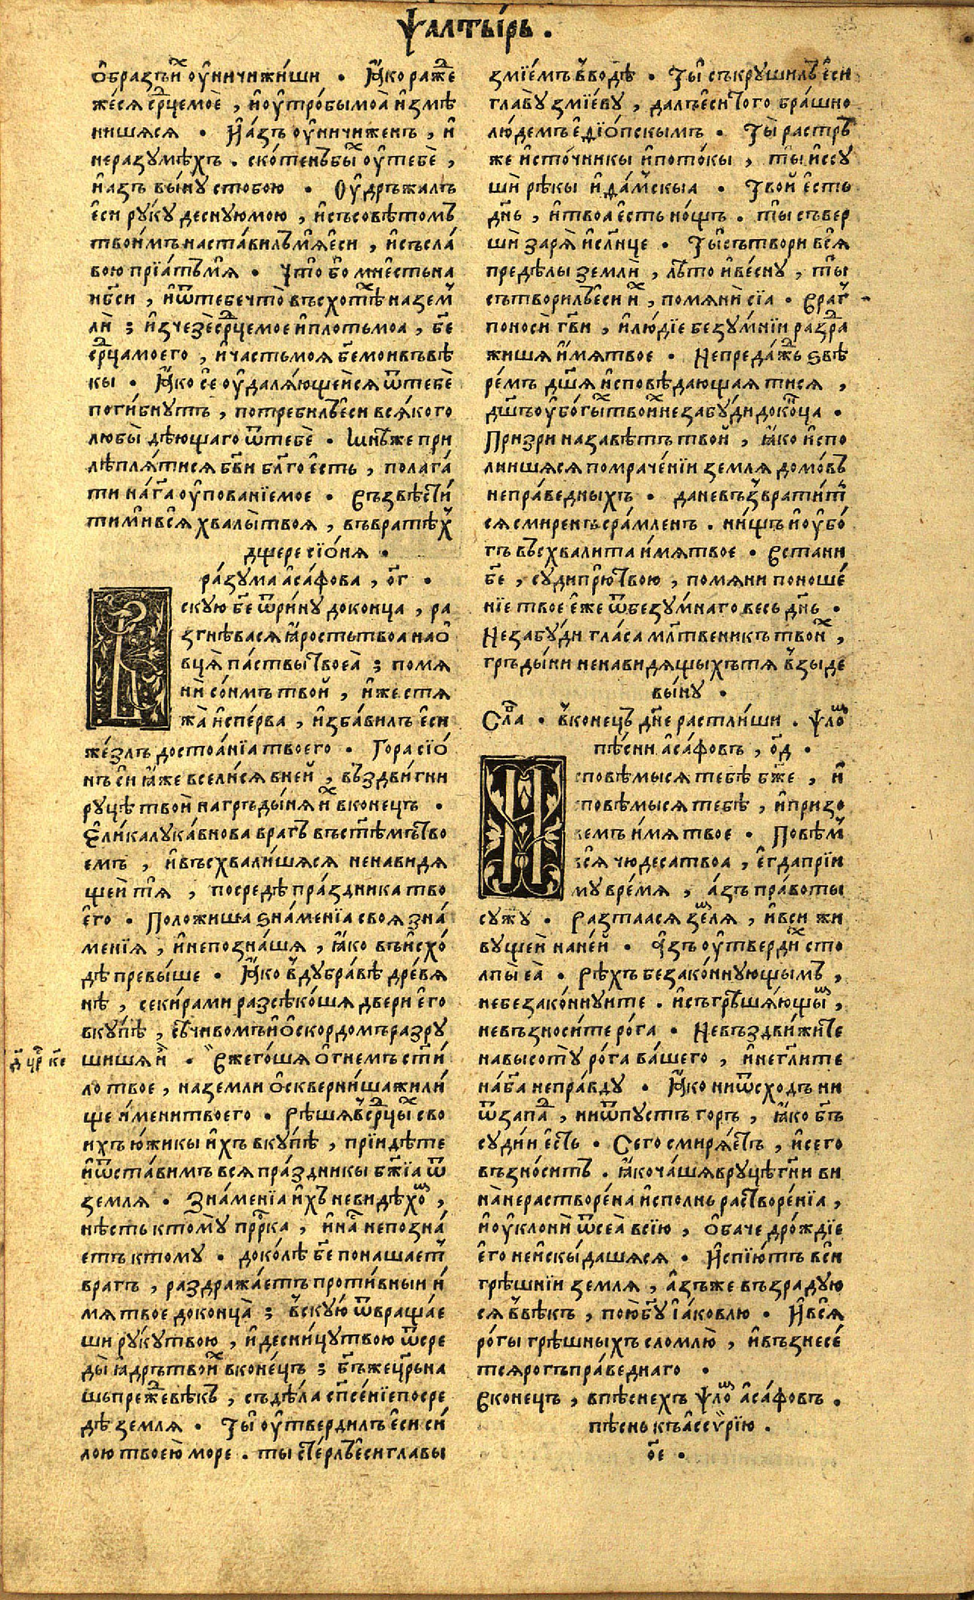 Ѱалтырь .
ѻ҆бразъ и҆̑ ѹ҆ничижиши . Ꙗ҆ко раже
жеся ср҃це мое , и҆ ѹ҆тробы моа̀ и҆змѣ
нишяся . И҆ азъ ѹ҆ничиженъ , и҆
неразумѣхъ . скотенъ бы̑х ѹ҆ тебѐ ,
и҆ азъ вы́ну с тобою . Оу҆дръжалъ
еси руку десную мою , и҆ съсовѣтомъ
твои́мъ наста́вилъ мя є҆си , и҆ съ сла́
вою прїатъ мя̀ . Что́ бо ми є҆сть на
нб҃си , и҆ ѿ тебе что̀ въсхотѣ́х на зем̑
лѝ ; и҆зчезѐ ср҃це мое и҆ плоть моа , бж҃е
ср҃ца моего , и҆ часть моя бж҃е мои въ вѣ́
кы . Ꙗ҆ко се ѹ҆даля́ющеися ѿ тебѐ
поги́бнутъ , потребилъ є҆си вся́кого
любы̀ дѣющаго ѿ тебѐ . Мнѣ́ же при
лѣпля́тися бг҃ви бл҃го є҆сть , полага́
ти на гд҃а ѹ҆пованїе мое . Възвѣсти́
ти ми вся̀ хвалы̀ твоя , въ вратѣ́х
дщере сїо́ня .
ра́зума а҆са́фова , о҃г .
Въскую̀ бж҃е ѿри́ну до конца , ра
згнѣвася ꙗ҆рость твоа на ѻ҆́
вця̀ па́ствы твоеа̀ ; помя
нѝ со́нмъ твой , и҆́же стя
жа̀ и҆спе́рва , и҆зба́вилъ є҆си
же́злъ достоа́нїа твоего . Гора сїо́
нъ сѝ ꙗ҆́же вселися в ней , въздви́гни
руцѣ̀ твои̑ на гръды́ня и҆х в конецъ .
Є҆ли́ка лука́внова врагъ въ ст҃ѣ́мъ тво
емъ , и҆ въсхвали́шяся ненави́дя
щеи тя̀ , посредѣ̀ пра́здника тво
є҆го . Положи́ша ѕна́менїа своя зна́
менїя , и҆ не позна́шя , ꙗ҆́ко въ и҆схо́
дѣ превы́ше . Ꙗ҆́ко в дубра́вѣ дре́вя
нѣ , секи́рами разсѣко́шя двери є҆го
вку́пѣ , сѣчивомъ и҆ ѻ҆скордомъ разру
шишя и҆̑ . Вжего́шя ѻ҆гнемъ ст҃и́
ло твое , на земли ѻ҆скверни́ша жили́
ще и҆́мени твоего . Рѣ́шя в ср҃цы́х сво
ихъ ю҆́жикы и҆́хъ вку́пѣ , прїидѣ́те
и҆ ѿста́вимъ вся пра́здникы бж҃їа ѿ
земля . Зна́менїа и҆́хъ не ви́дѣхом̑ ,
нѣ́сть ктому̀ прⷪ҇рка , и҆ на́с не позна́
етъ ктому . доко́лѣ бж҃е понашает̑
врагъ , раздража́етъ проти́вныи и҆́
мя твое до конца̀ ; в скую̀ ѿвраща́е
ши руку твою , и҆ десни́цу твою ѿ сре
ды̀ ꙗ҆́дръ твои̑х в коне́цъ ; бг҃ъ же цр҃ь на
шь пре́же вѣ́къ , съдѣ́ла сп҃се́нїе посре
дѣ̀ земля . Ты̀ ѹ҆твердилъ є҆си си́
лою твоею̀ море . ты̀ сте́рлъ є҆си главы
д҃ цр҃ к҃е
змїе́мъ в водѣ̀ . Ты̀ съкрушилъ є҆си
главу̀ змїе́ву , далъ є҆си того бра́шно
лю́демъ є҆ѳїо́пскымъ . Ты̀ растръ
же и҆сто́чникы и҆ пото́кы , ты̀ и҆ссу
шѝ рѣ́кы и҆ѳа́мскыа . Твой є҆́сть
дн҃ь , и҆ твоа є҆́сть но́щь . ты̀ съвер
шѝ заря̀ и҆ сл҃нце . Ты̀ сътвори вся̀
предѣ́лы землѝ , лѣ́то и҆ ве́сну , ты̀
сътворилъ є҆си и҆̑х , помянѝ сїа . Враг̑
поносѝ гд҃ви , и҆ лю́дїе безу́мнїи раздра
жишя и҆́мя твое . Не преда́жь ѕвѣ
ре́мъ дш҃я и҆сповѣ́дающая тися ,
дш҃ъ ѹ҆бо́гы̑х твои̑х не забу́ди до коⷩ҇ца .
При́зри на завѣ́тъ твой , ꙗ҆́ко и҆спо
лнишяся помраче́нїи земля домо́въ
непра́ведныхъ . да не възврати́т̑
ся смиренъ сра́мленъ . ни́щь и҆ ѹ҆бо́
гъ въсхвалита и҆́мя твое . Встани
бж҃е , судѝ прю̀ твою , помяни поноше́
нїе твое є҆́же ѿ безу́мнаго весь дн҃ь .
Не забу́ди гла́са мл҃твеникъ твои̑х ,
гръды́ни ненави́дящыхъ тя взы́де
вы́ну .
Сла̑ . в конецъ да не растли́ши . ѱалом̑
пѣ́сни а҆са́фовъ , о҃д .
Исповѣ́мыся тебѣ̀ бж҃е , и҆
сповѣ́мыся тебѣ , и҆ призо
вемъ и҆́мя твое . Повѣ́м̑
вся чюдеса твоа , є҆гда прїи
му вре́мя , а҆зъ пра́воты
сужу̀ . Разтаася земля̀ , и҆ вси жи
вущеи на ней . А҆зъ ѹ҆тверди̑х сто
лпы̀ еа̀ . Рѣ́хъ безако́ннующымъ ,
не безако́ннуите . и҆ съгрѣшя́ющым̑ ,
не възноси́те ро́га . Не въздви́жите
на высоту̀ ро́га ва́шего , и҆ не гл҃ите
на бг҃а непра́вду . Ꙗ҆ко ни ѿ сходъ ни
ѿ запад̑ , ни ѿ пустъ горъ , ꙗ҆ко бг҃ъ
судїи є҆сть . Сего смиря́етъ , и҆ сего
възно́ситъ . ꙗ҆ко ча́шя в руцѣ̀ гд҃ни ви
на̀ нерастворе́на и҆сполнь растворе́нїа ,
и҆ ѹ҆клонѝ ѿ сеа̀ в сїю̀ , ѻ҆ба́че дро́ждїе
є҆го не и҆скыда́шяся . И҆спїю́тъ вси
грѣ́шнїи земля , а҆́зъ же възра́дую
ся в вѣ́къ , пою̀ бг҃у і҆а́ковлю . И҆ вся̀
ро́гы грѣ́шныхъ сломлю̀ , и҆ възнесе́
тся рогъ пра́веднаго .
В конецъ , в пѣ́снехъ ѱалом̑ а҆са́фовъ .
пѣ́снь къ ассѷ́рїю .
о҃е .